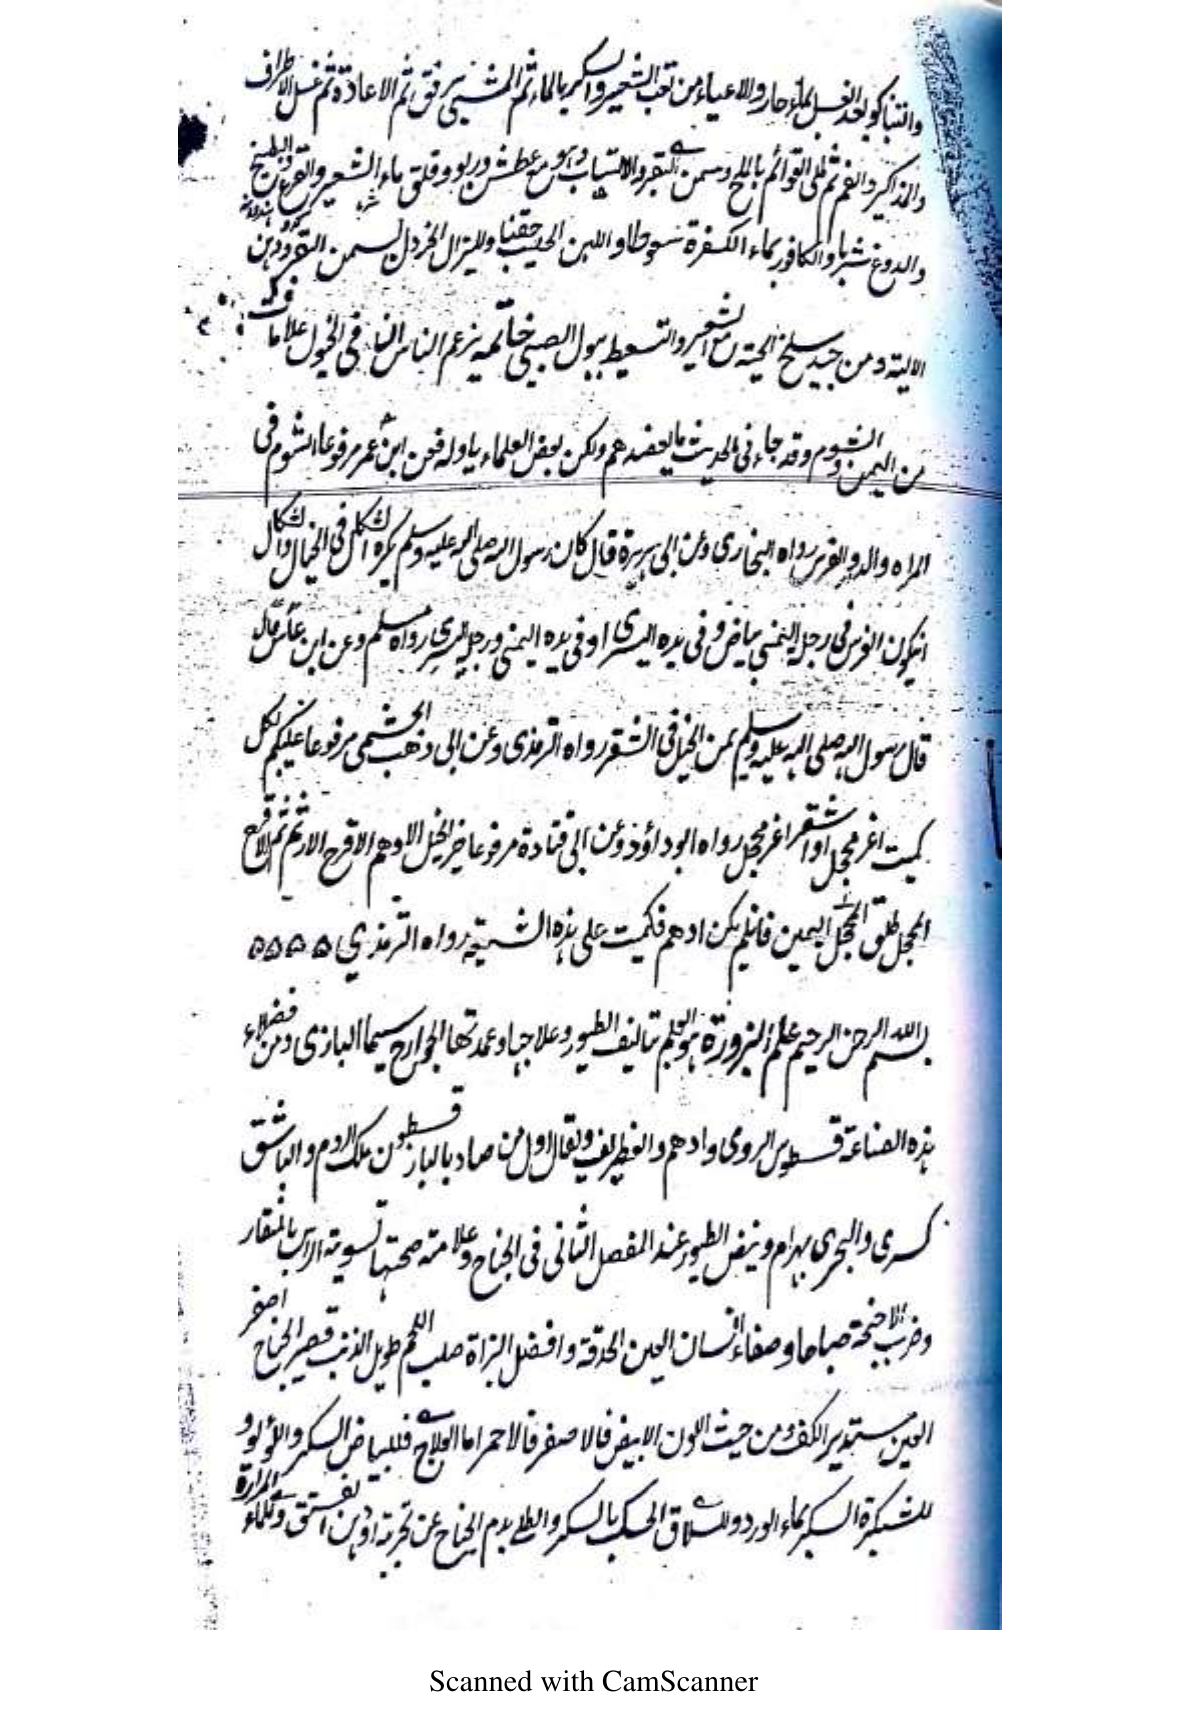 والتنباكو بعد الغسل بماء حار والاعياء من تعب الشعير والسكر بالماء ثم المشي برفق ثم الاعادة ثم غسل الاطراف
والمذاكير والفم ثم طلى القوائم بالملح وسمن البقر والالتهاب وهو مع عطش وربو وقلق ماء الشعير والقرع والبطيخ
والدوغ شربا والكافور بماء الكسفرة سعوطا واللبن الحليب حقنا وللهزال الخردل بسمن البقر ودهن
الالية ومن جيد سلخ الحية مع الشعير والتسعيط ببول الصبي خاتمه يزعم الناس ان في الخيول علاما
من اليمن والشوم وقد جاء في الحديث ما يعضدهم ولكن بعض العلماء ياوله فعن ابن عمر مرفوعا الشوم في
المراه والدار والفرس رواه البخارى وعن ابى هريرة قال كان رسول الله صلى الله عليه وسلم يكره الشكال في الخيل والشكال
ان يكون الفرس في رجله اليمنى بياض وفى يده اليسرى او فى يده اليمنى ورجله اليسرى رواه مسلم وعن ابن عباس قال
قال رسول الله صلى الله عليه وسلم يمن الخيل في الشقر رواه الترمذى وعن ابى وهب الجشمى مرفوعا عليكم بكل
كميت اغر محجل او اشقر اغر محجل رواه ابو داؤد وعن ابى قتادة مرفوعا خير الخيل الادهم الاقرح الارثم ثم الاقرح
المحجل طلق اليمين فان لم يكن ادهم فكميت على هذه الشية رواه الترمذي ۵ ۵ ۵ ۵
بسم الله الرحمن الرحيم علم البزورة هو العلم بتاليف الطيور وعلاجها وعمدتها الجوارح سيما البازى ومن فضلاء
هذه الصناعة قسطوس الرومى وادهم والغطريف ويقال اول من صاد بالباز قسطون ملك الروم والباشق
كسرى والبحرى بهرام ونبض الطيور عند المفصل الثانى فى الجناح وعلامة صحتها تسوية الراس بالمنقار
وضرب الاجنحة صباحا وصفاء انسان العين الحدقة وافضل البزاة صلب اللحم طويل الذنب قصير الجناح اصفر
العين مستدير الكف ومن حيث اللون الابيض فالاصفر فالاحمر اما العلاج فللبياض السكر واللؤلؤ و
للشبكرة السكر بماء الورد وللسلاق الحك بالسكر والطلے بدم الجناح عن تجربة او دهن الفستق وبماء المرارة
Scanned with CamScanner